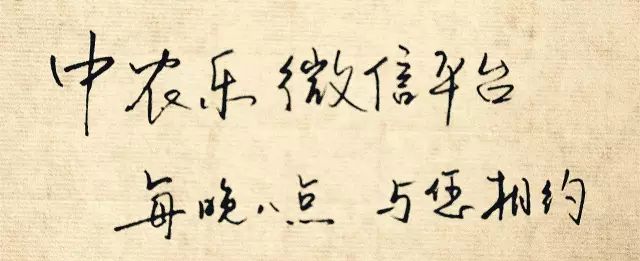 中农乐微信平台
每晚八点 与您相约